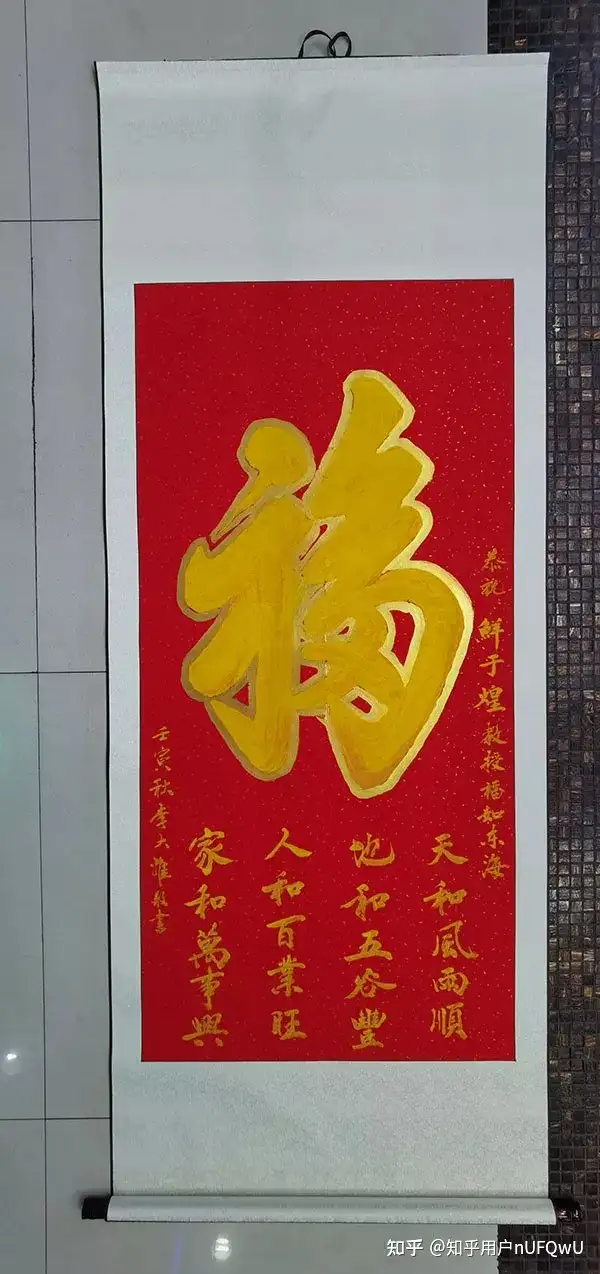 福
恭祝 鲜于煌教授福如东海
天和風雨順
地和五谷豐
人和百業旺
家和萬事興
壬寅秋李大惟敬書
知乎 @知乎用户nUFQwU